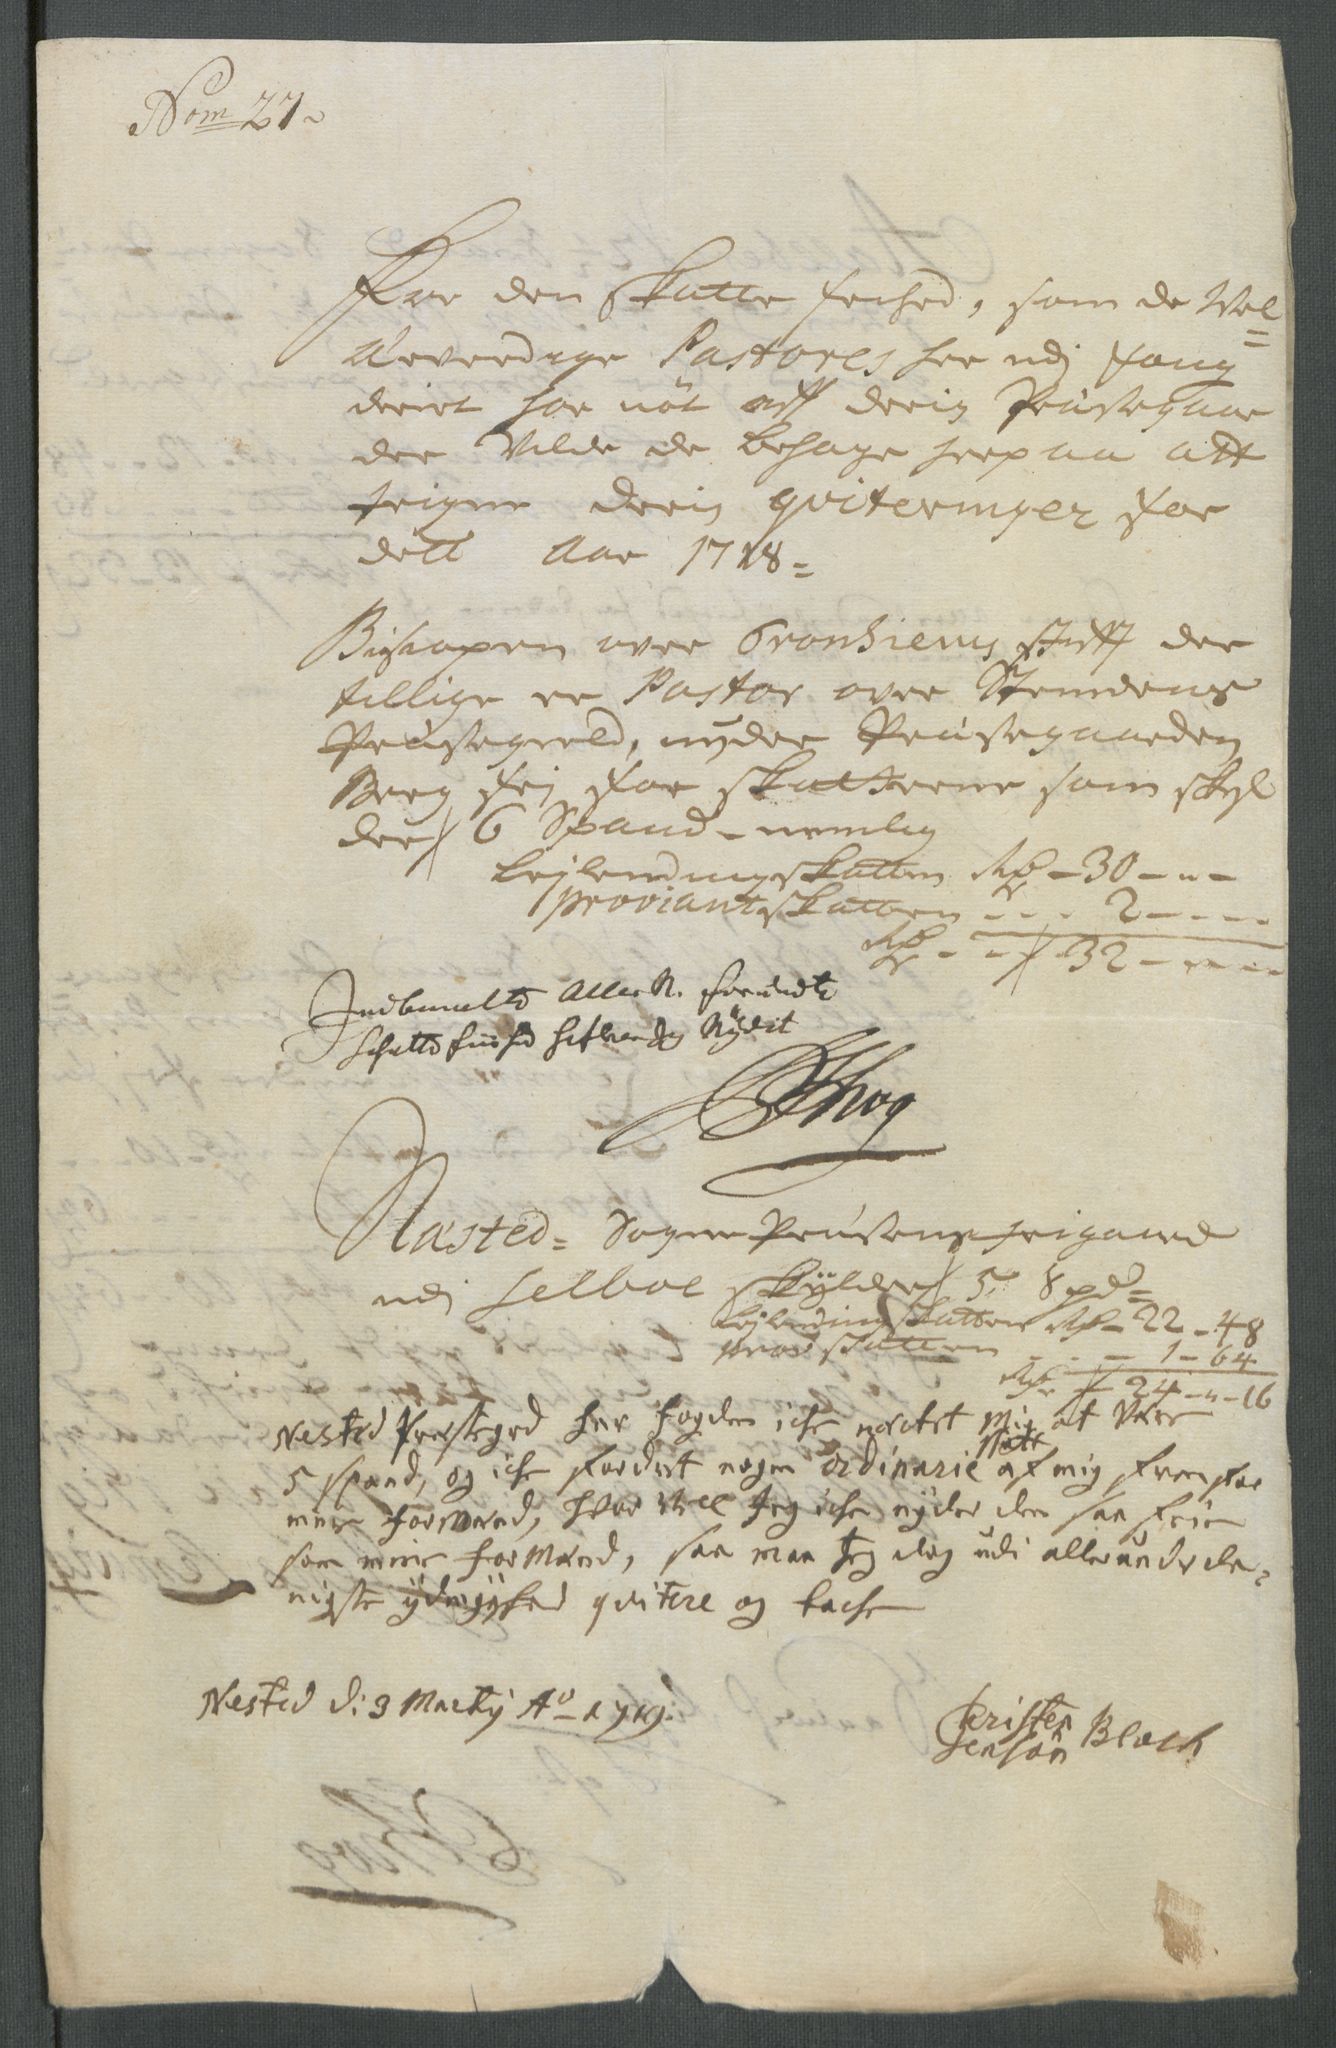 Nom 27.
For den Skatte frihed, som de Wel=
Ærværdige Pastores her udj foug
deriet har nöt aff deris Præstegaar
der Vilde de behage herpaa att
teigne deris qviteringer for
dett Aar 1718=
Biskopen over Tronhiems stifft der
tillige er Pastor over Strindens
Præstegield, nyder Præstegaarden
Berg frj for skatterne som skyl
der 6 Spand - nemlig
Leylendingskatten Rdr - 30 - " -
proviantskatten - - - 2 - - -
Rdr - - 32 - - -
Indbemelte Aller N. forundte
schatte friihed hafver Jeg Nÿdit
Krog
Næsted= Sogne Præstens frigaard
udj Selboe skÿlder 5, 8 pd=
Leylendingskatten Rdr - 22 - 48
prov skatten - - - 1 - 64
Rdr - 24 - " - 16
Nested Præstegrd har fogden iche videre mig at være
5 spand, og iche fordret nogen ordinarie skatt af mig frem for
mine formænd, hvor vell Jeg iche nyder den saa frie
som mine forMænd, saa maa Jeg dog udi allerunderda=
nigste ÿdmyghed qvitere og tache
Nested d: 3 Martij Ao 1719:
Christen
Jensøn Bloch